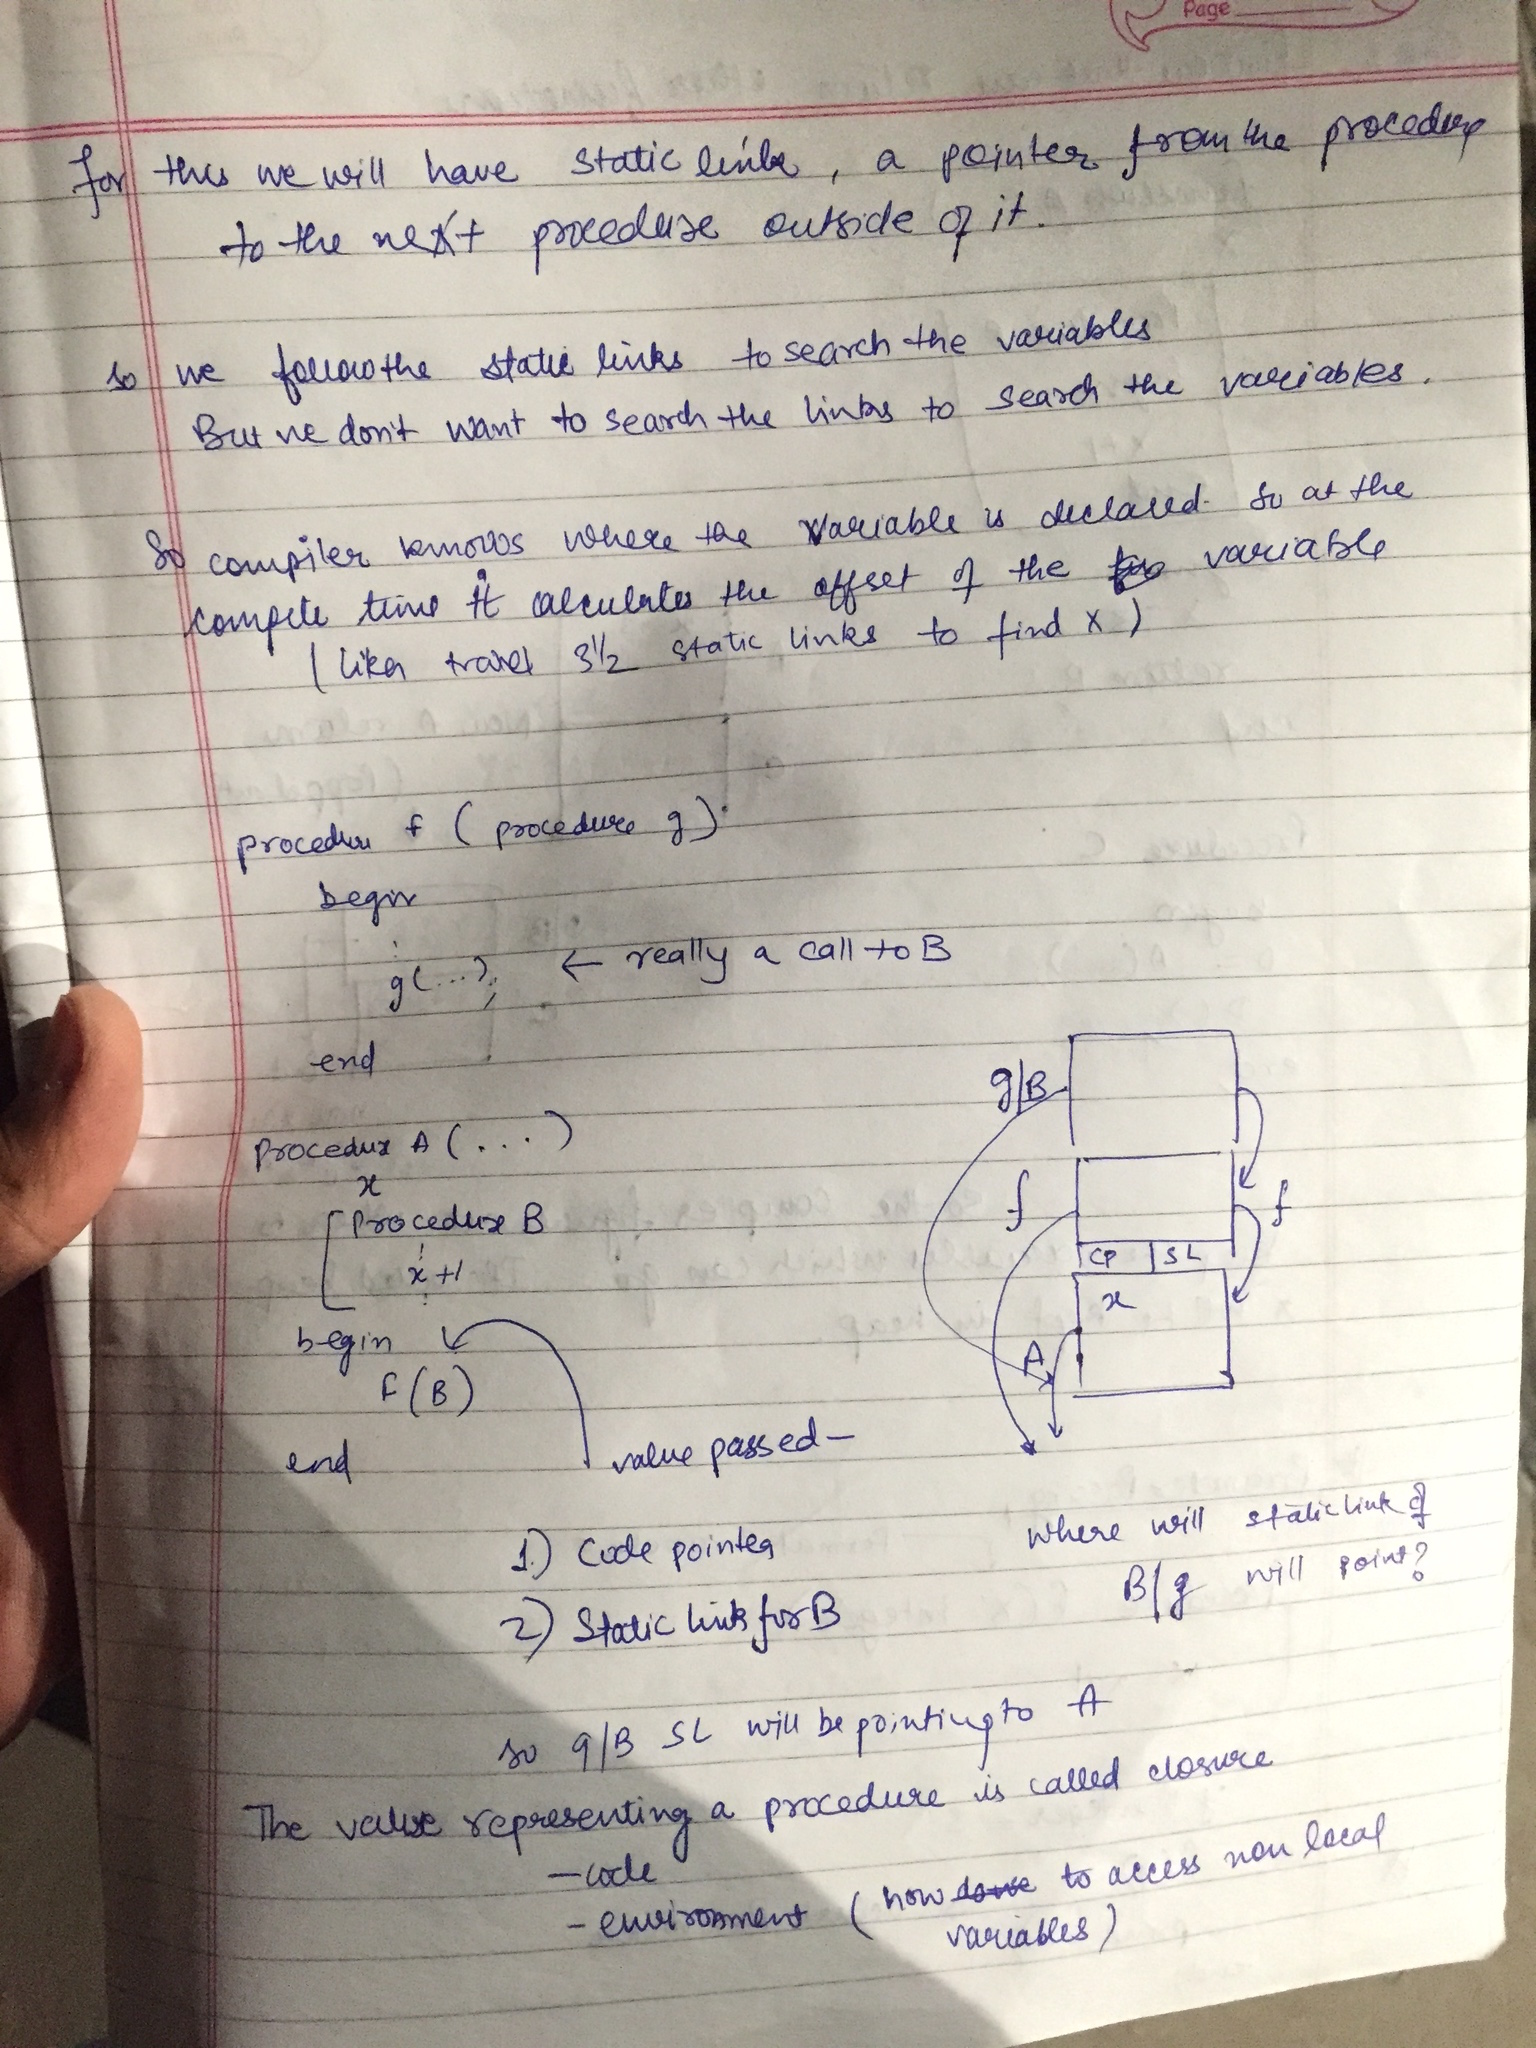 Page
for this we will have static links, a pointer from the procedure
to the next procedure outside of it.
so we follow the static links to search the variables
But we don't want to search the links to search the variables.
So compiler knows where the variable is declared. So at the
compile time it calculates the offset of the variable
(like travel 3½ static links to find x)
procedure f (procedure g)
begin
g(...); ← really a call to B
end
procedure A (...)
x
procedure B
x+1
begin
f(B)
end
value passed—
1.) Code pointer
2) Static link for B
g/B
f
f
CP | SL
x
A
where will static link of
B/g will point?
so g/B SL will be pointing to A
The value representing a procedure is called closure
– code
– environment (how to access non local
variables)